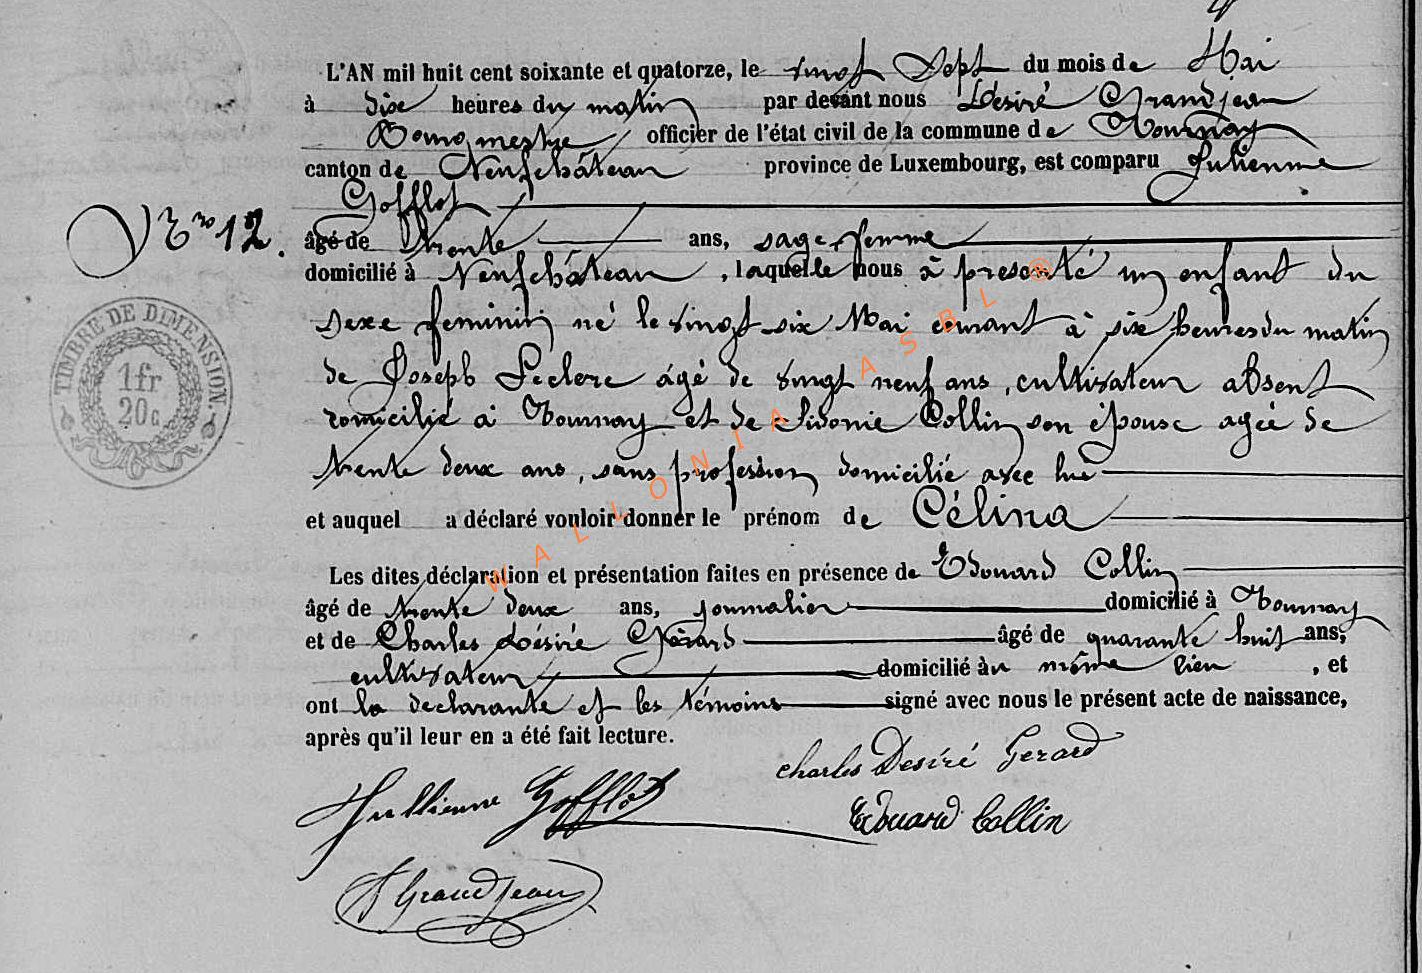 L'AN mil huit cent soixante et quatorze, le vingt Sept du mois de Mai
à dix heures du matin par devant nous Désiré Grandjean
Bourgmestre officier de l'état civil de la commune de Tournay
canton de Neufchâteau province de Luxembourg, est comparu Julienne
Gofflot
N° 12.
âgé de trente ans, sage femme
domicilié à Neufchâteau, laquelle nous à presenté un enfant du
sexe feminin né le vingt six Mai courant à six heures du matin
de Joseph Leclere âgé de vingt neuf ans, cultivateur absent
domicilié à Tournay et de Sidonie Collin son épouse agée de
trente deux ans, sans profession domicilié avec lui
et auquel a déclaré vouloir donner le prénom de Célina
TIMBRE DE DIMENSION.
1 fr
20 c
Les dites déclaration et présentation faites en présence de Edouard Collin
âgé de trente deux ans, journalier domicilié à Tournay
et de Charles Désiré Gérard âgé de quarante huit ans,
cultivateur domicilié au même lieu, et
ont la declarante et les témoins signé avec nous le présent acte de naissance,
après qu'il leur en a été fait lecture.
charles Desiré Gerard
Jullienne Gofflot
Edouard Collin
Grandjean
WALLONIA ASBL ®